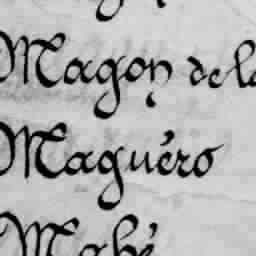 Magon de la
Maguéro
Mahé